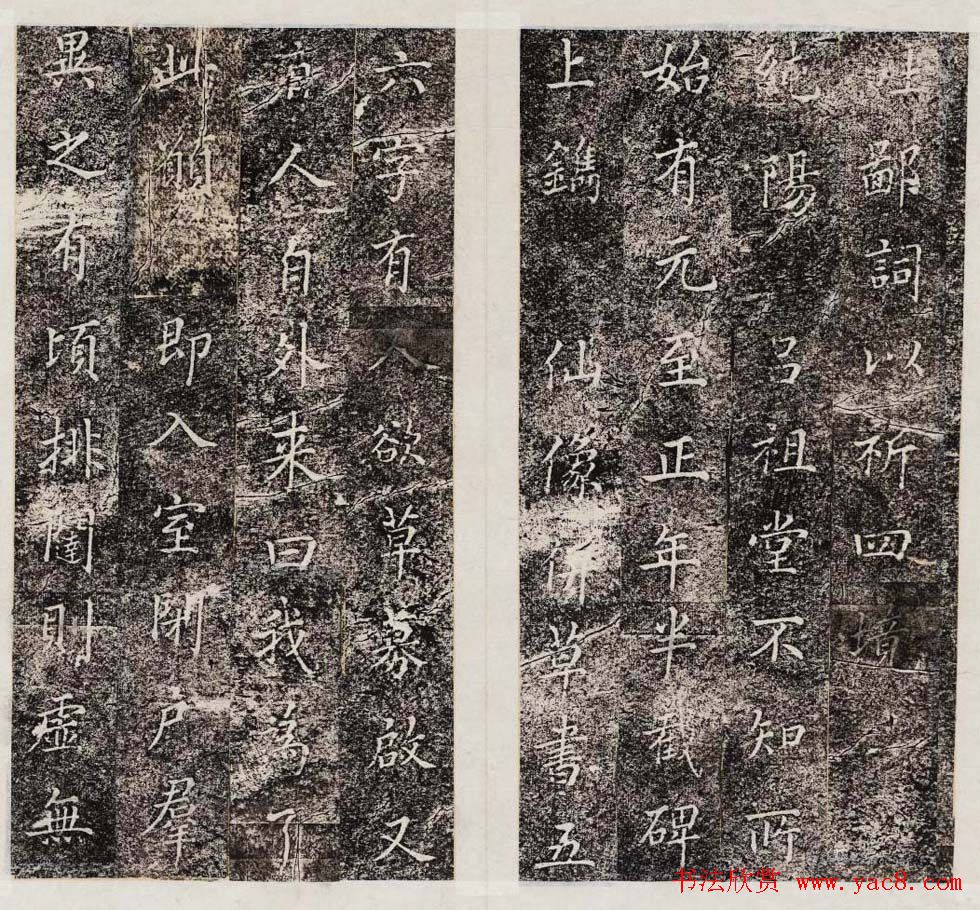 吐鄙詞以祈四墻
純陽吕祖堂不知所
始有元至正年半截碑
上鐫仙像併草書五
六字有人欲草募啟又
人自外来曰我為了
此願即入室閉户羣
異之有頃排闥則虛無
书法欣赏 www.yac8.com